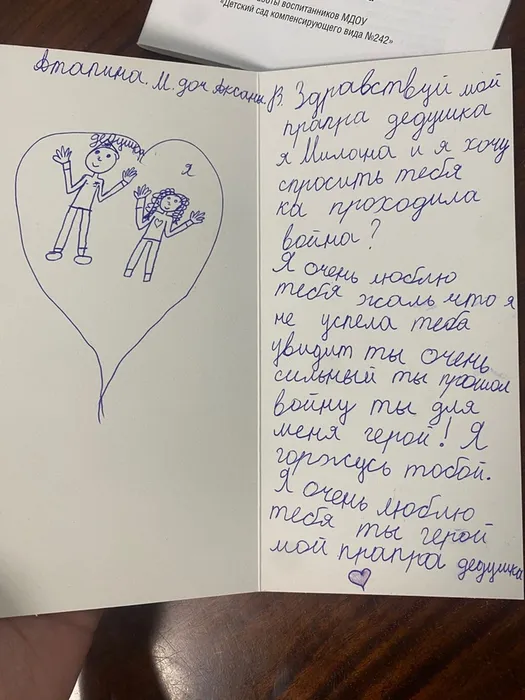 боты воспитанников МДОУ
«Детский сад компенсирующего вида №242»
Атапина. М. доч Аксани. В.
дедушка
я
Здравствуй мой
прапра дедушка
я Милана и я хочу
спросить тебя
ка проходила
война?
Я очень люблю
тебя жаль что я
не успела теба
увидит ты очень
сильный ты прошол
войну ты для
меня герой! Я
горжусь тобой.
Я очень люблю
тебя ты герой
мой прапра дедушка